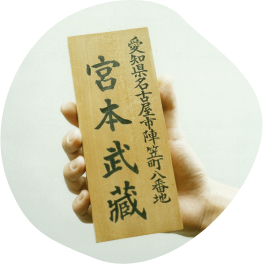 愛知県名古屋市陣笠町八番地
宮本武藏